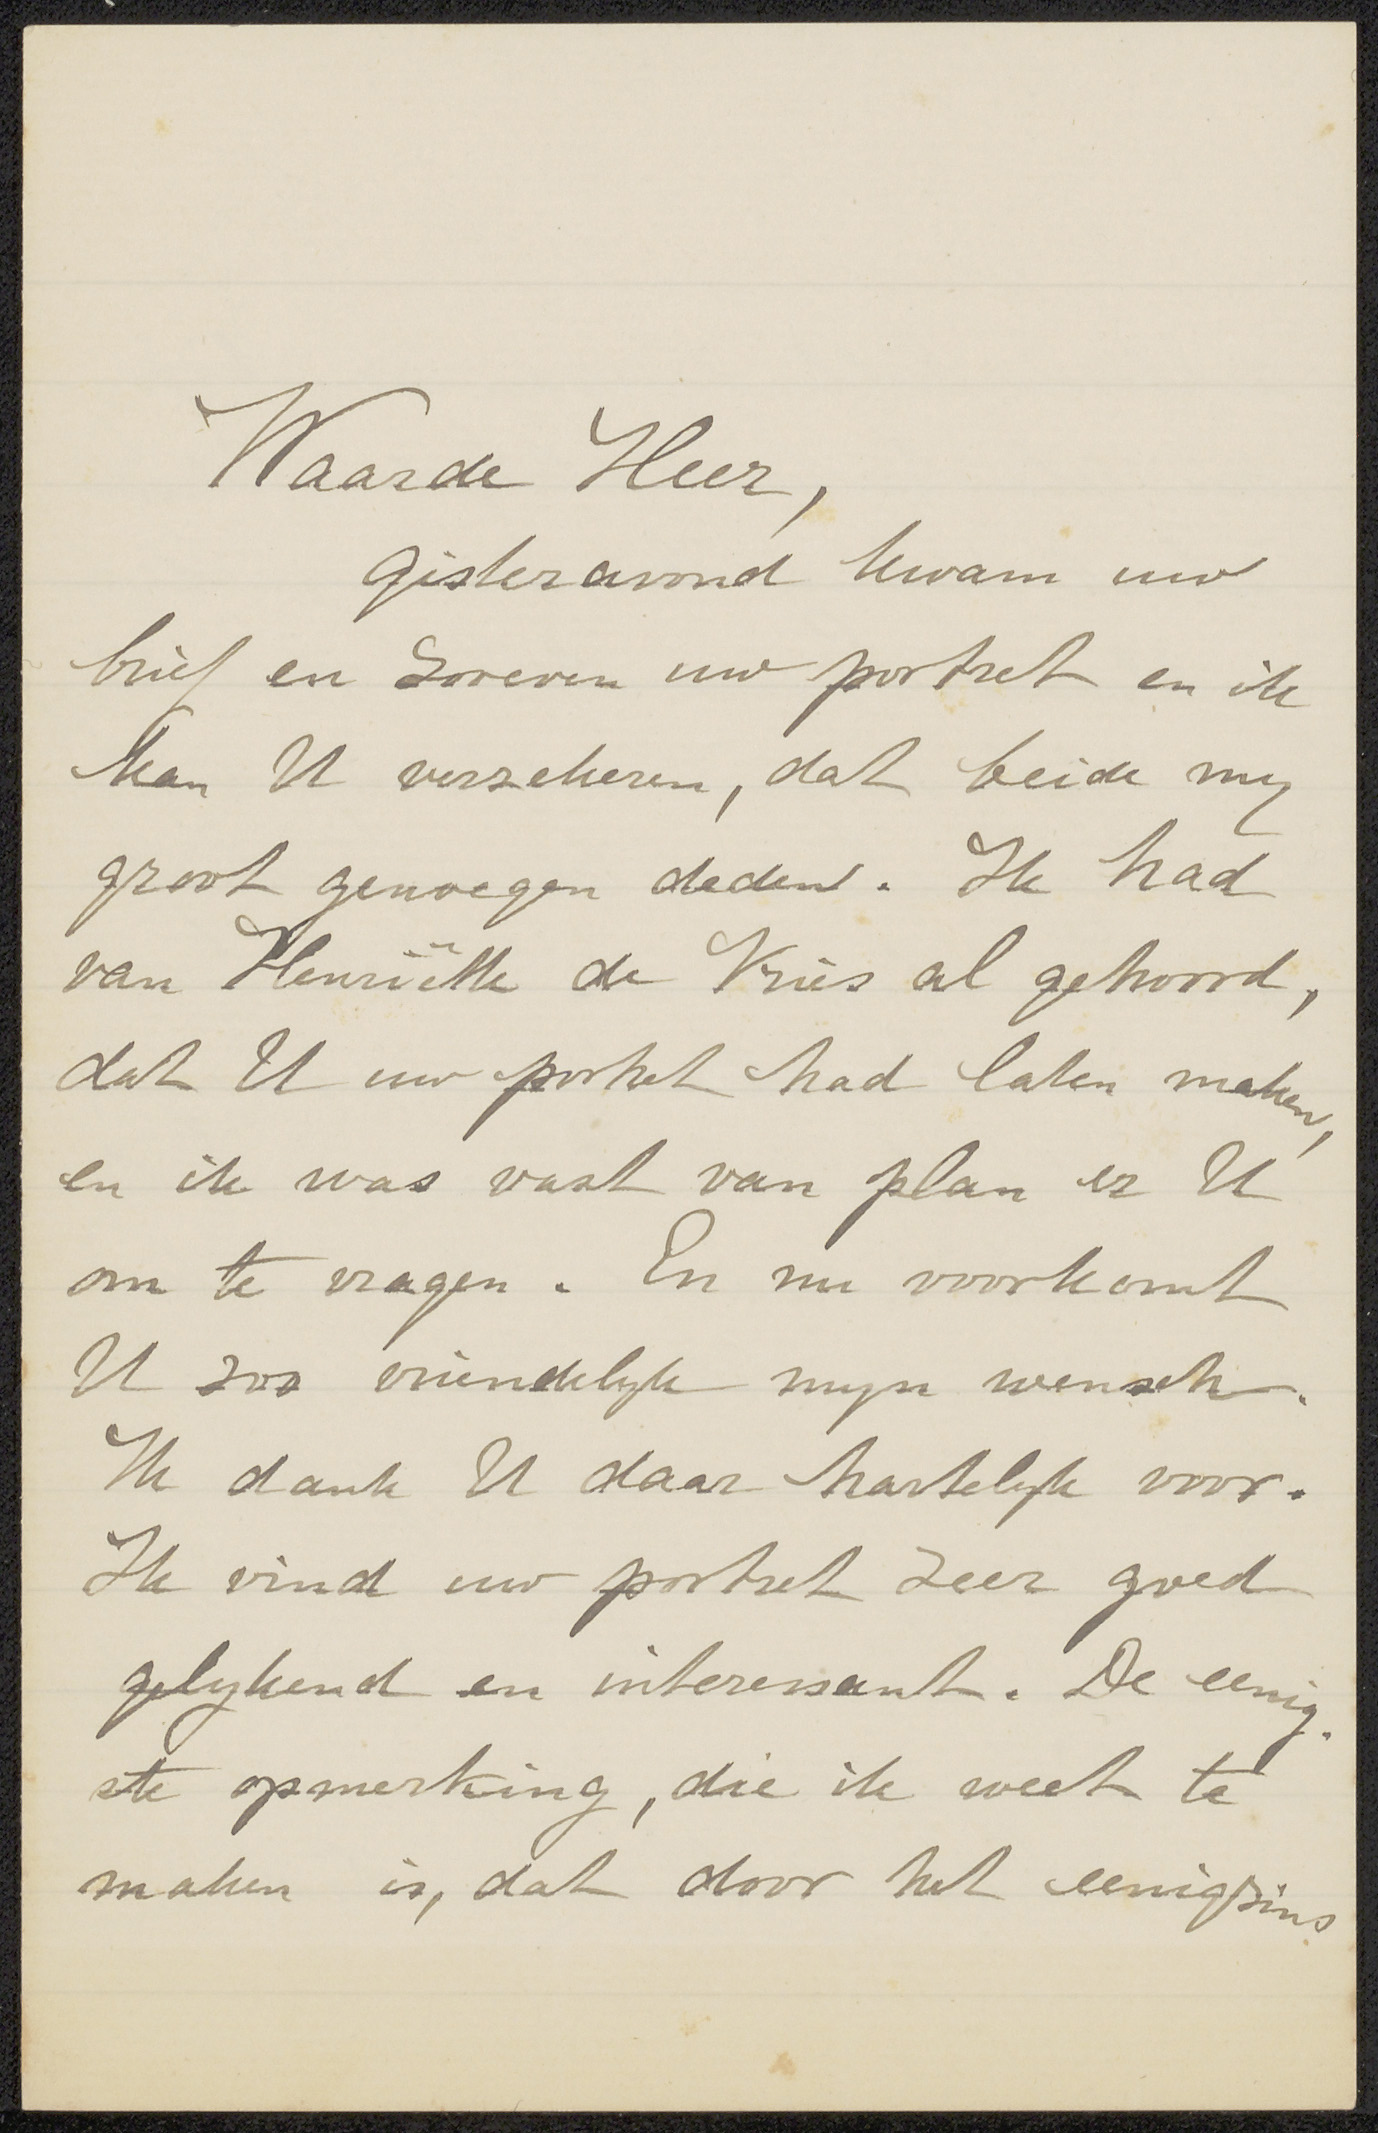 Waarde Heer,
gisteravond kwam uw
brief en zoreven uw portret en ik
kan U verzekeren, dat beide my
groot genoegen deden. Ik had
van Henriëtte de Vries al gehoord,
dat U uw portret had laten maken,
en ik was vast van plan er U
om te vragen. En nu voorkomt
U zoo vriendelyk myn wensch.
Ik dank U daar hartelyk voor.
Ik vind uw portret zeer goed
gelykend en interessant. De eenig-
ste opmerking, die ik weet te
maken is, dat door het eenigzins